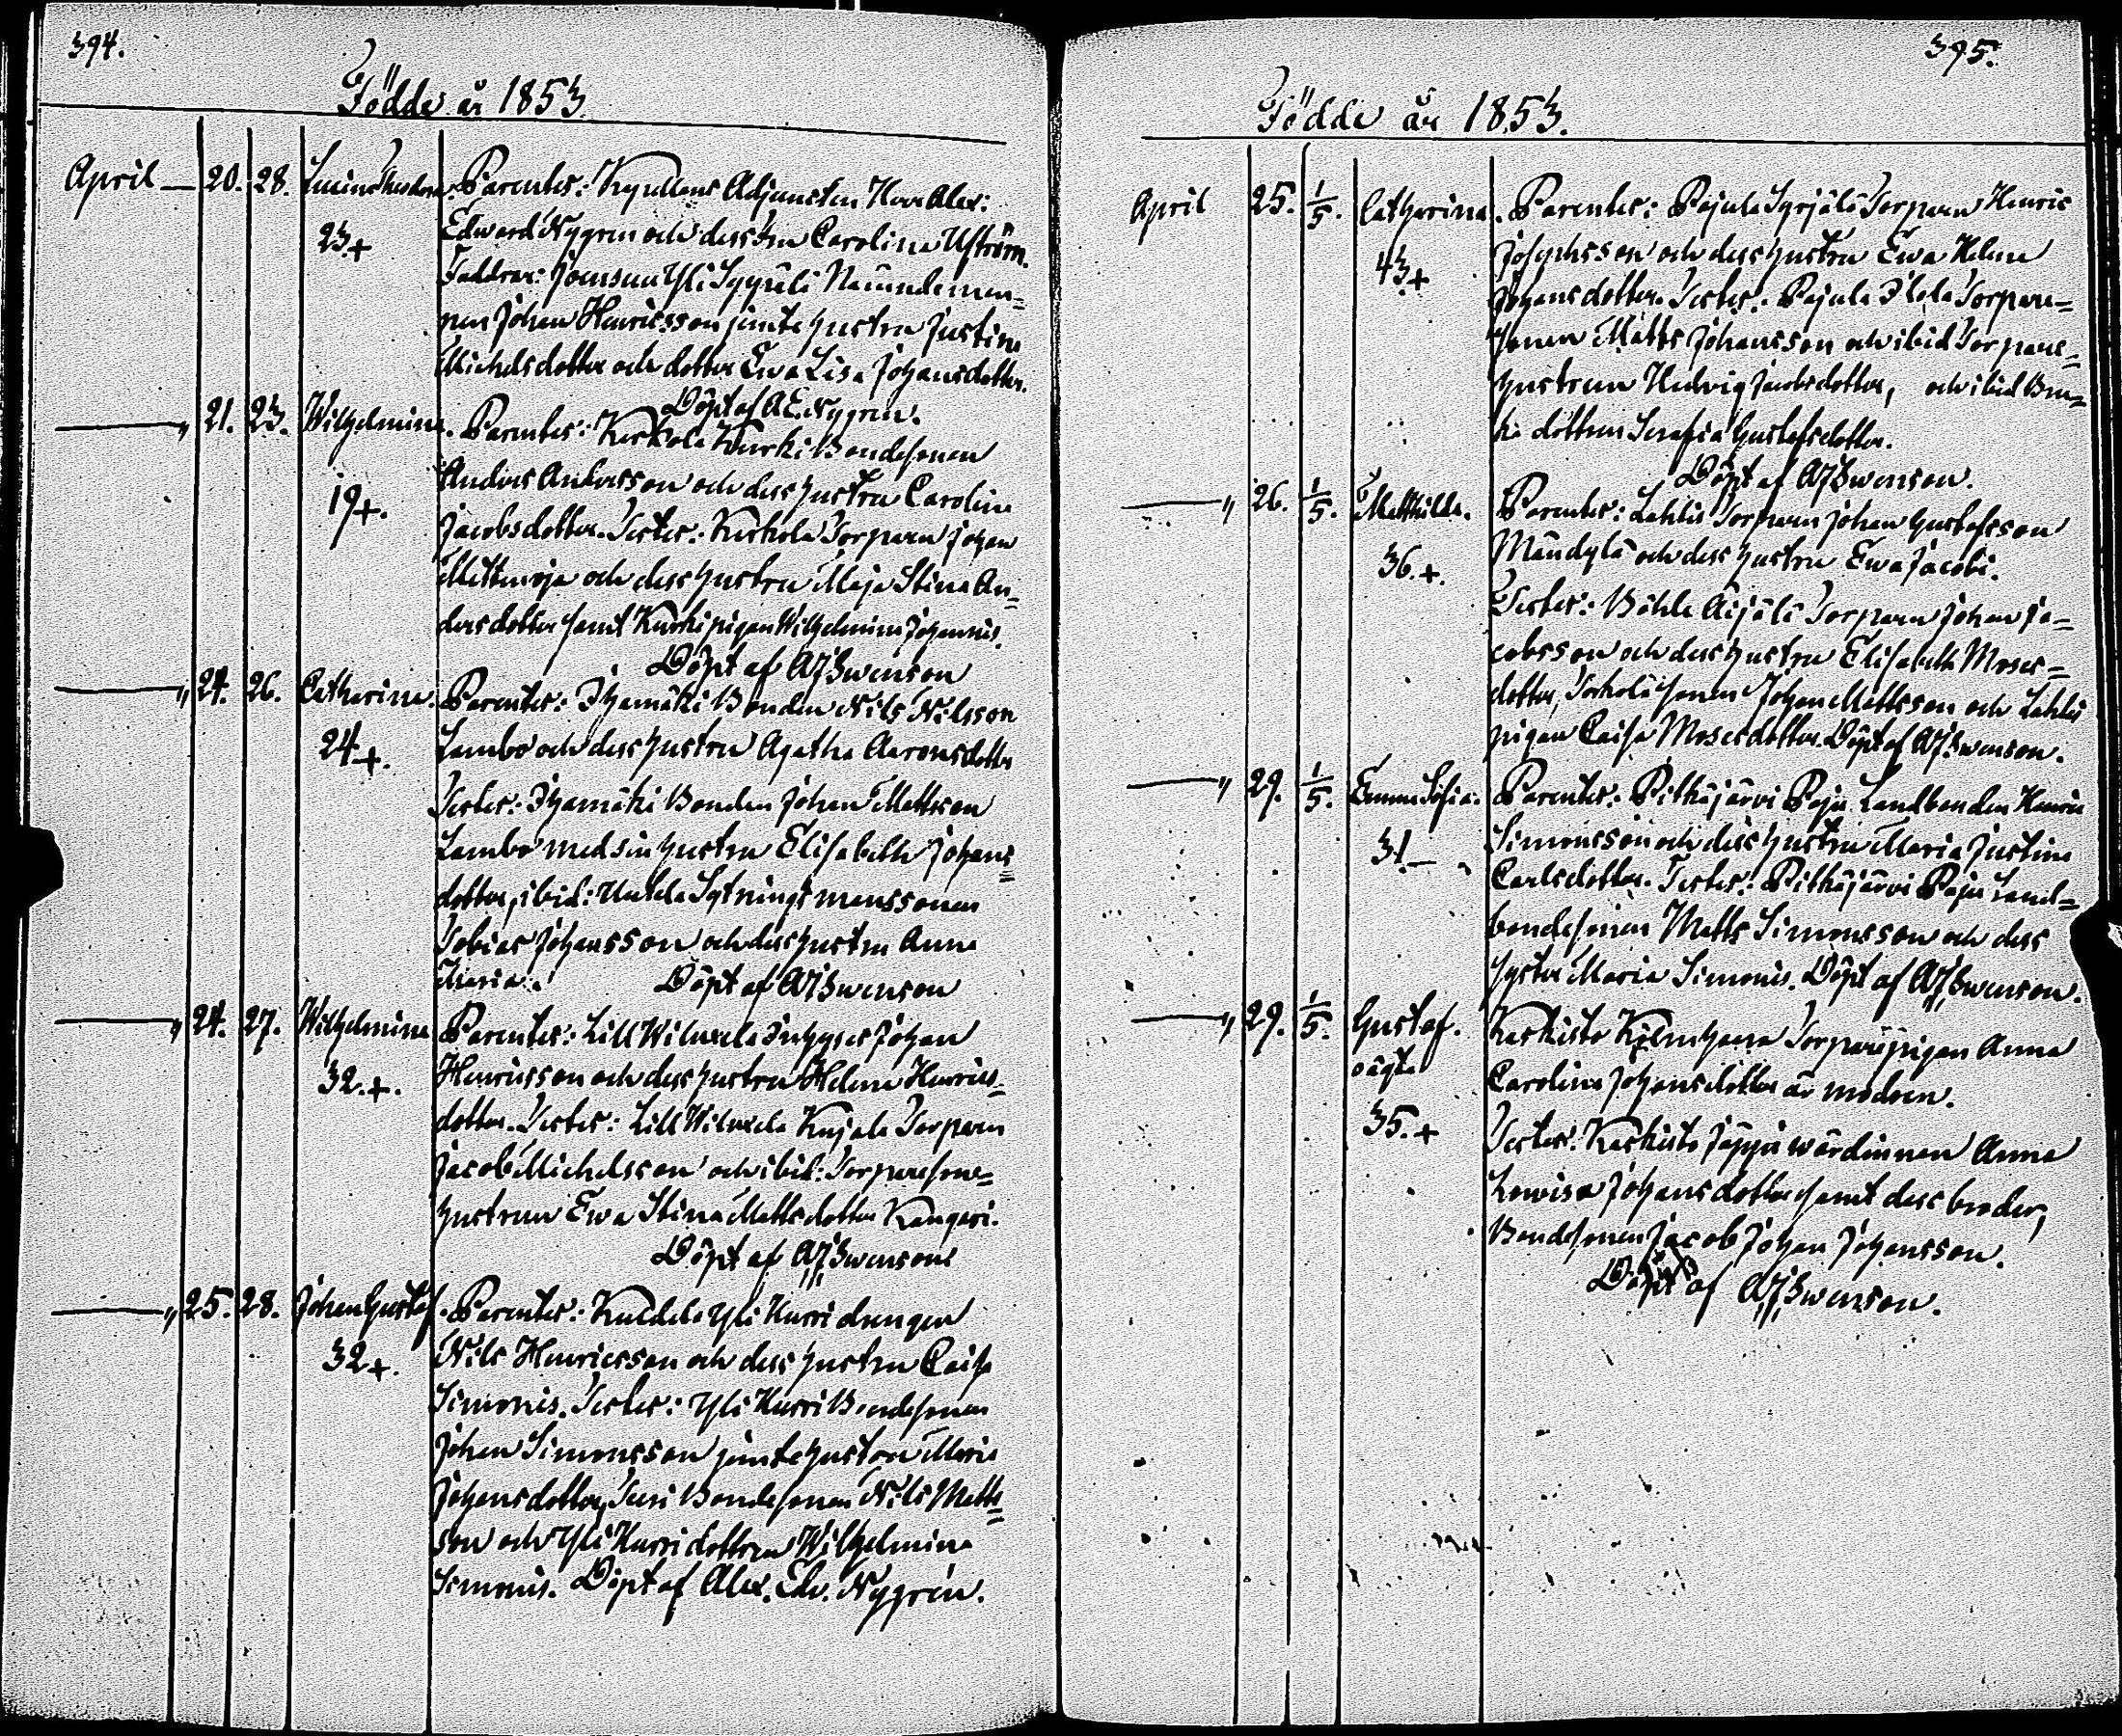 394.
Födde år 1853
April — 20. 28. Parentes: Kapellans Adjuncten Herr Alex:
23.+ Edward Nygren och dess fru Carolina Uström.
Faddrar: Joensuu Yli Nämndeman=
nen Johan Henricsson jemte hustru Justina
Michelsdotter och dotter Ewa Lisa Johansdotter.
Döpt af A E. Nygren.
—„ 21. 23. Wilhelmina. Parentes: Kerkola Kurki Bondesonen
Anders Andersson och dess hustru Carolina
19+. Jacobsdotter. Testes: Kerkola Torparen Johan
och dess hustru Maja Stina An=
dersdotter samt Kurki pigan Wilhelmina Johannis.
Döpt af AJSwenson
—„ 24. 26. Catharina. Parentes: Ihamäki Bonden Nils Nilsson
24+. Lambo och dess hustru Agatha Aaronsdotter
Testes: Ihamäki Bonden Johan Mattsson
Lambo med sin hustru Elisabeth Johans=
dotter, ibid: Untela Sytningsmanssonen
Tobias Johansson och dess hustru Anna
Maria. Döpt af AJSwenson
—„ 24. 27. Wilhelmina Parentes: Lill Inhyses Johan
32.+. Henricsson och dess hustru Helena Henrics=
dotter. Testes: Lill Kujala Torparen
Jacob Michelsson och ibid: Torparesons=
hustrun Ewa Stina Mattsdotter Kangari.
Döpt af AJSwenson
—„ 25. 28. Johan Gustaf. Parentes: Yli Kurri drengen
32+. Nils Henricsson och dess hustru Caisa
Simonis. Testes: Yli Kurri Bondesonen
Johan Simonsson jemte hustru Maria
Johansdotter, Bondesonen Nils Matts=
son och Yli Kurri dottren Wilhelmina
Simonis. Döpt af Alex. Edv. Nygrén.
395.
Födde år 1853.
April 25. 1/5. Catharina. Parentes: Pajula Torparen Henric
43+ Josephsson och dess hustru Ewa Helena
Johansdotter. Testes: Pajula Torpare=
sonen Matts Johansson och ibid Torpare=
hustrun Hedvig Jacobsdotter, och ibid
dottren Serafia Gustafsdotter.
Döpt af AJSwenson.
—„ 26. 1/5. Matthilda. Parentes: Lahtis Torparen Johan Gustafsson
36.+. Mändylä och dess hustru Ewa Jacobi.
Testes: Böhle Äijälä Torparen Johan Ja=
cobsson och dess hustru Elisabeth Moses=
dotter, sonen Johan Mattsson och Lahtis
pigan Caisa Mosesdotter. Döpt af AJSwenson.
—„ 29. 1/5. Emma Sofia. Parentes: Pitkäjärvi Paju Landbonden Henric
31— Simonsson och dess hustru Maria Justina
Carlsdotter. Testes: Pitkäjärvi Paju Land=
bondesonen Matts Simonsson och dess
syster Maria Simonis. Döpt af AJSwenson.
—„ 29. 1/5. Gustaf. Torparepigan Anna
oägta Carolina Johansdotter är modren.
35.+ Testes: Jäppi wärdinnan Anna
Lowisa Johansdotter samt dess broder,
Bondesonen Jacob Johan Johansson.
Döpt af AJSwenson.